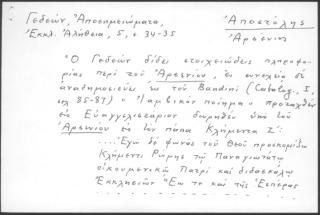 Γεδεών, Ἀποσημειώματα,
Ἐκκλ. Ἀλήθεια, 5, σ. 34-35
Ἀποστόλης
Ἀρσένιος
Ὁ Γεδεών δίδει στοιχειώδεις πληροφο-
ρίας περί τοῦ Ἀρσενίου, ἐν συνεχείᾳ δέ
ἀναδημοσιεύει ἐκ τοῦ Bandini (Catalog. I,
σχ 85-87) τό Ἰαμβικόν ποίημα τό προταχθέν
εἰς Εὐαγγελιστάριον δωρηθέν ὑπό τοῦ
Ἀρσενίου εἰς τόν πάπα Κλήμεντα Ζ΄:
....Ἐγώ δέ φωνάς τοῦ Θεοῦ προσκομίζω
Κλήμεντι Ρώμης τῷ Παναγιωτάτῳ
οἰκουμενικῷ Πατρί καί διδασκάλῳ
Ἐκκλησιῶν Ἕω τε καί τῆς Ἑσπέρας